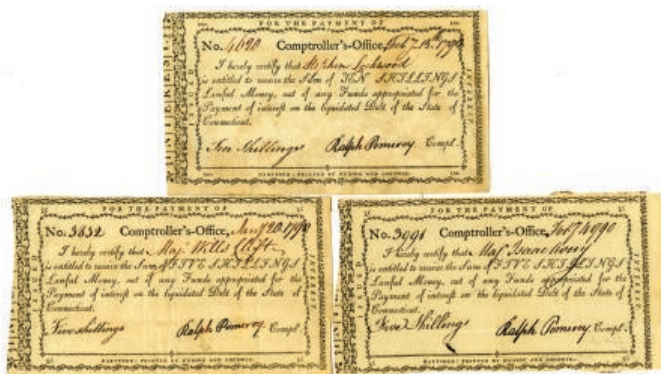 FOR THE PAYMENT OF
No. 4620 Comptroller's-Office, Feb 7. 15th 1790
I hereby certify that Stephen Lockwood
is entitled to receive the Sum of TEN SHILLINGS
Lawful Money, out of any Funds appropriated for the
Payment of interest on the liquidated Debt of the State of
Connecticut.
Ten Shillings Ralph Pomeroy Compt.
HARTFORD: PRINTED BY HUDSON AND GOODWIN.
ISSUED
INTEREST
FOR THE PAYMENT OF
No. 3832 Comptroller's-Office, Jany 20. 1790
I hereby certify that Maj. Wills Clift
is entitled to receive the Sum of FIVE SHILLINGS
Lawful Money, out of any Funds appropriated for the
Payment of interest on the liquidated Debt of the State of
Connecticut.
Five shillings Ralph Pomeroy. Compt.
HARTFORD: PRINTED BY HUDSON AND GOODWIN.
ISSUED
INTEREST
FOR THE PAYMENT OF
No. 3991 Comptroller's-Office, 1790
I hereby certify that Maj Isaac
is entitled to receive the Sum of FIVE SHILLINGS
Lawful Money, out of any Funds appropriated for the
Payment of interest on the liquidated Debt of the State of
Connecticut.
Five Shillings Ralph Pomeroy Compt.
HARTFORD: PRINTED BY HUDSON AND GOODWIN.
ISSUED
INTEREST